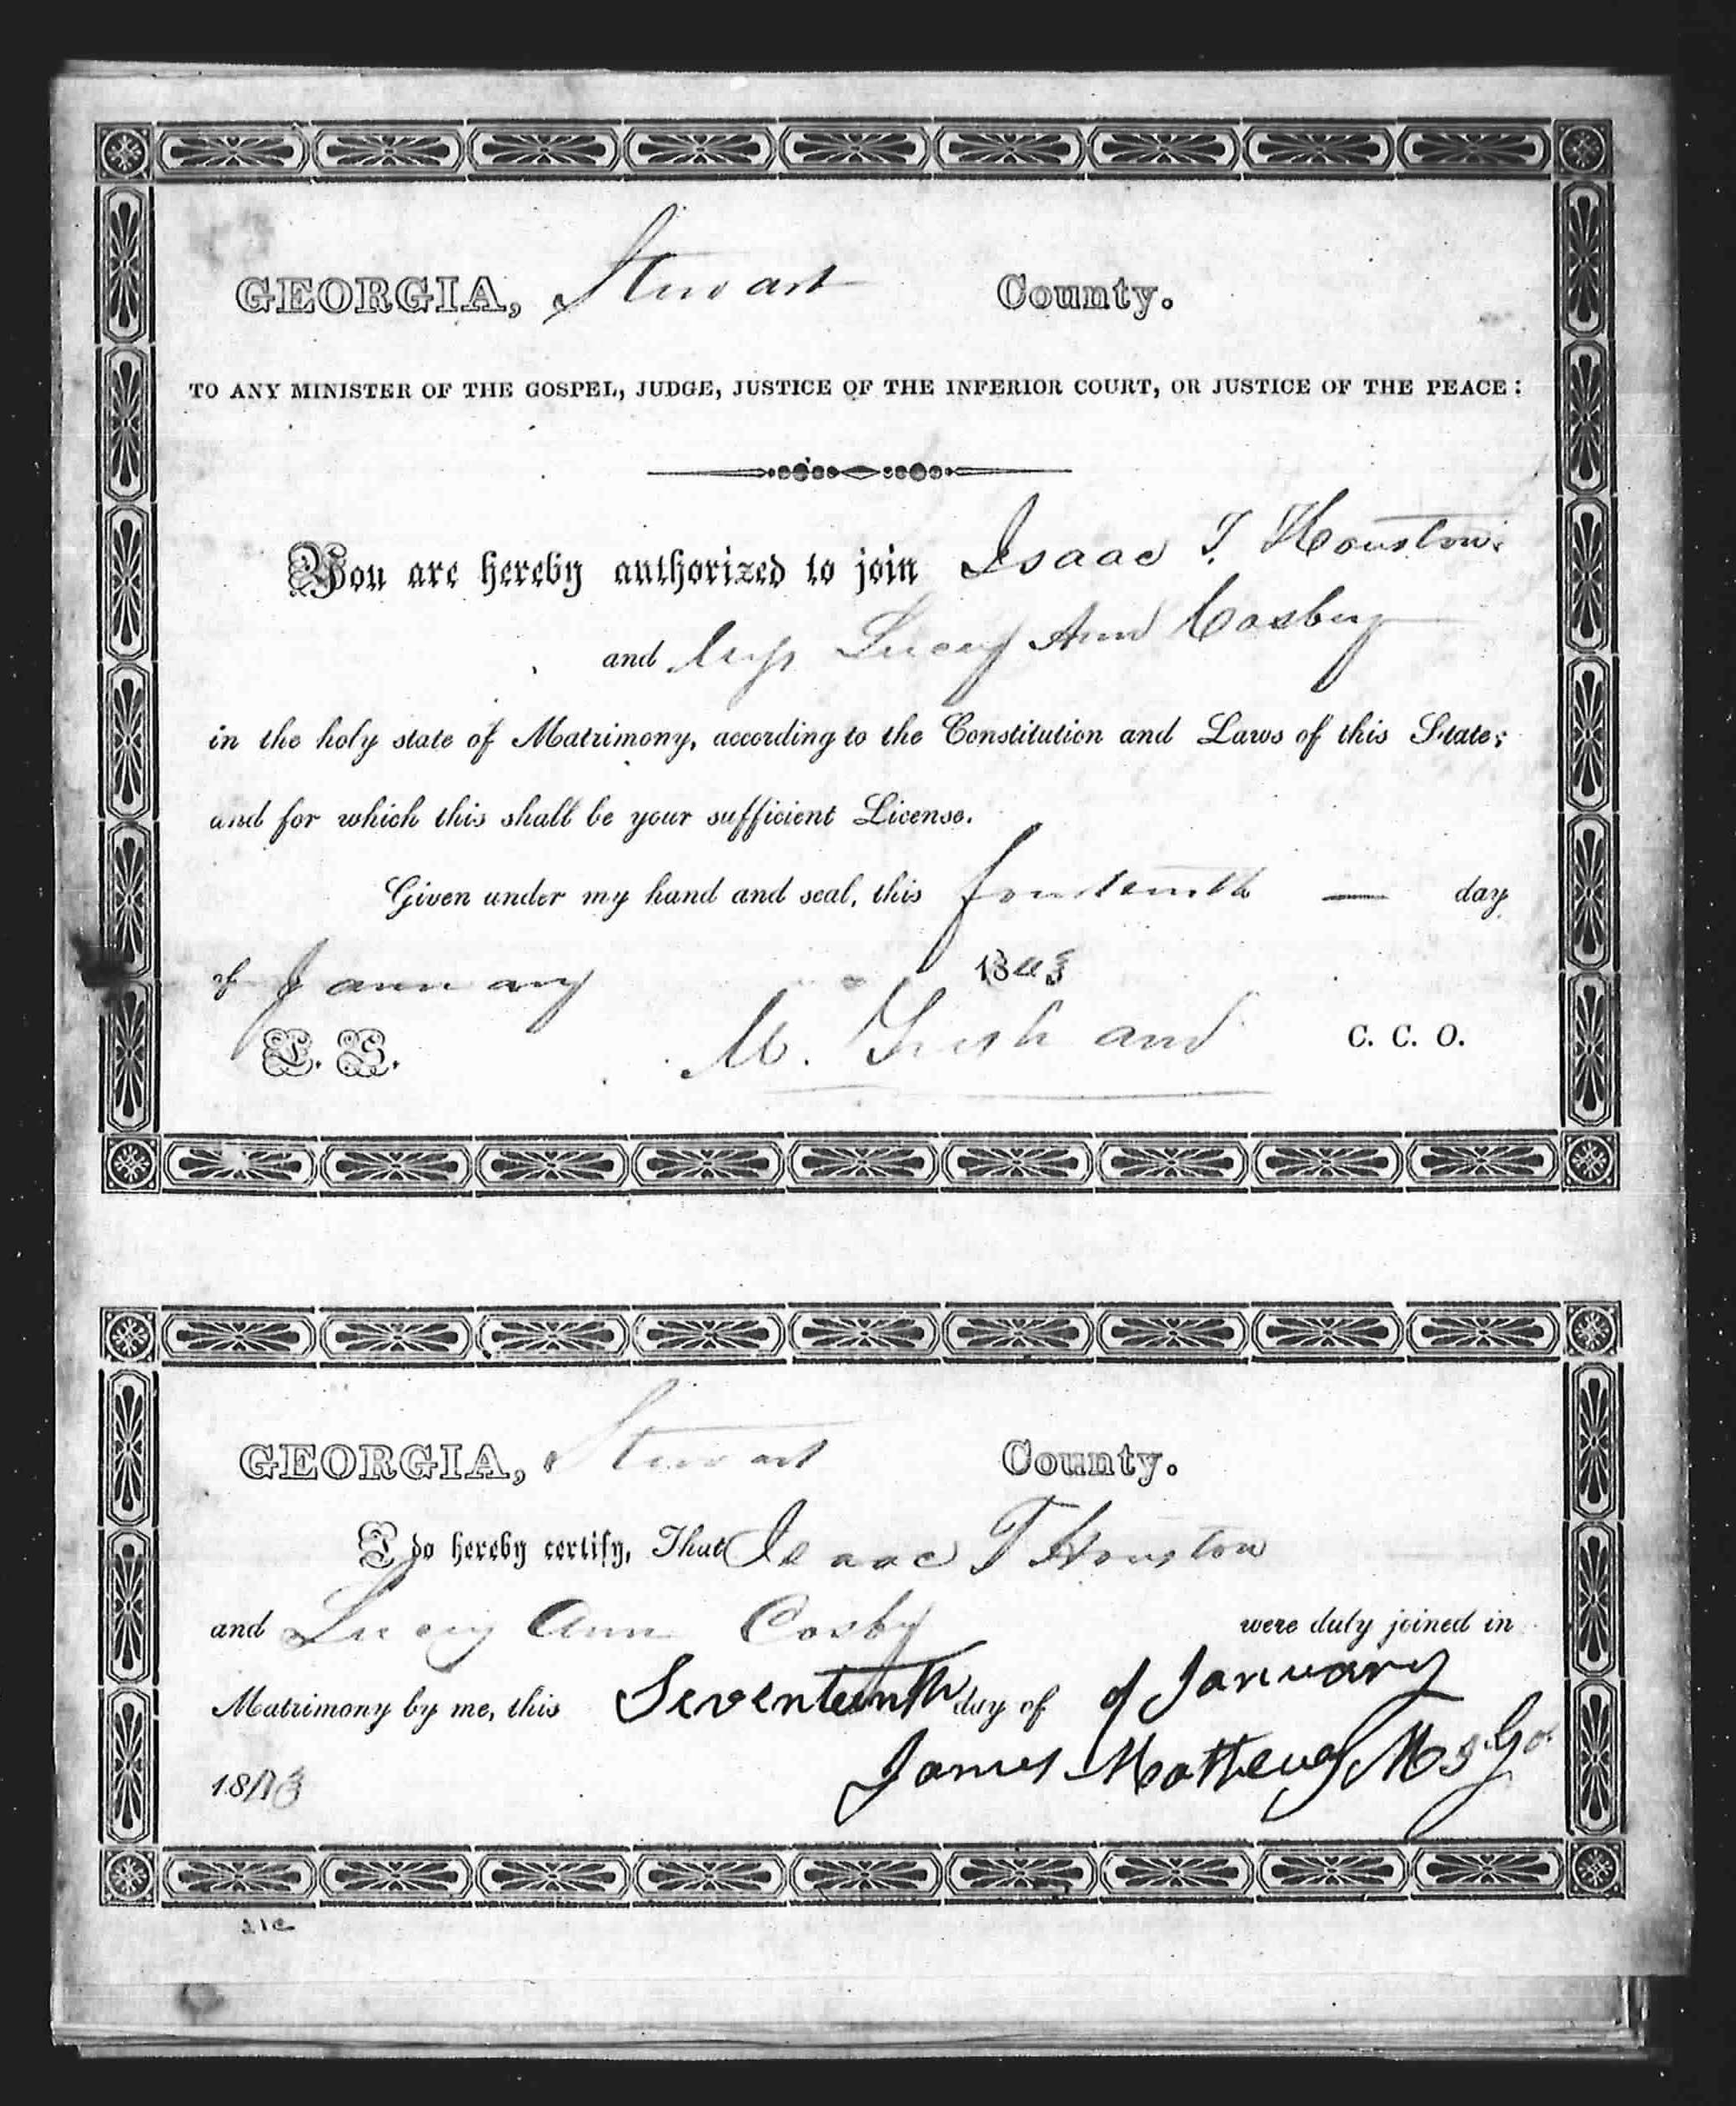 GEORGIA, Stewart County.
TO ANY MINISTER OF THE GOSPEL, JUDGE, JUSTICE OF THE INFERIOR COURT, OR JUSTICE OF THE PEACE:
You are hereby authorized to join Isaac T. Houston
and Miss Lucy Ann Cosby
in the holy state of Matrimony, according to the Constitution and Laws of this State;
and for which this shall be your sufficient License.
Given under my hand and seal, this fourteenth — day
of January 1843
L. S. M. Gresham C. C. O.
GEORGIA, Stewart County.
I do hereby certify, That Isaac T Houston
and Lucy Ann Cosby were duly joined in
Matrimony by me, this Seventeenth day of of January
1843 James Mathews